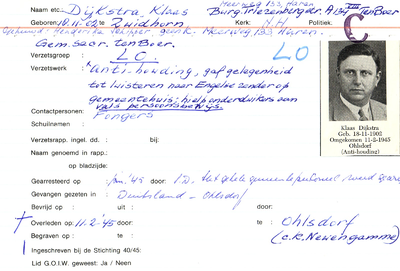 Meerweg 153, Haren
Naam etc. Dijkstra, Klaas Burg. Triezenbergstr. A 134 III Ten Boer
Geboren: 18-11-02 te Zuidhorn Kerk: N.H Politiek: C
Gehuwd: Hendrika geb. K. Meerweg 153 Haren.
Gem. secr. Ten Boer.
Verzetsgroep : L.O. LO
Verzetswerk : "Anti-houding", gaf gelegenheid
tot luisteren naar Engelse zender op
gemeentehuis; hielp onderduikers aan
vals persoonsbewijs.
Contactpersonen: Fongers
Schuilnamen :
Verzetsrapp. ingel. dd. : bij:
Naam genoemd in rapp.:
op bladzijde:
Gearresteerd op : jan. '45 door : S.D. Het gehele gemeentepersoneel werd gearr.
Gevangen gezeten in : Duitsland - Ohlsdorf
Bevrijd op : uit : door :
Overleden op : 11-2-'45 door: te : Ohlsdorf
Begraven op : te : (c.k. Neuengamme)
Ingeschreven bij de Stichting 40/45:
Lid G.O.I.W. geweest: Ja / Neen
Klaas Dijkstra
Geb. 18-11-1902
Omgekomen 11-2-1945
Ohlsdorf
(Anti-houding)